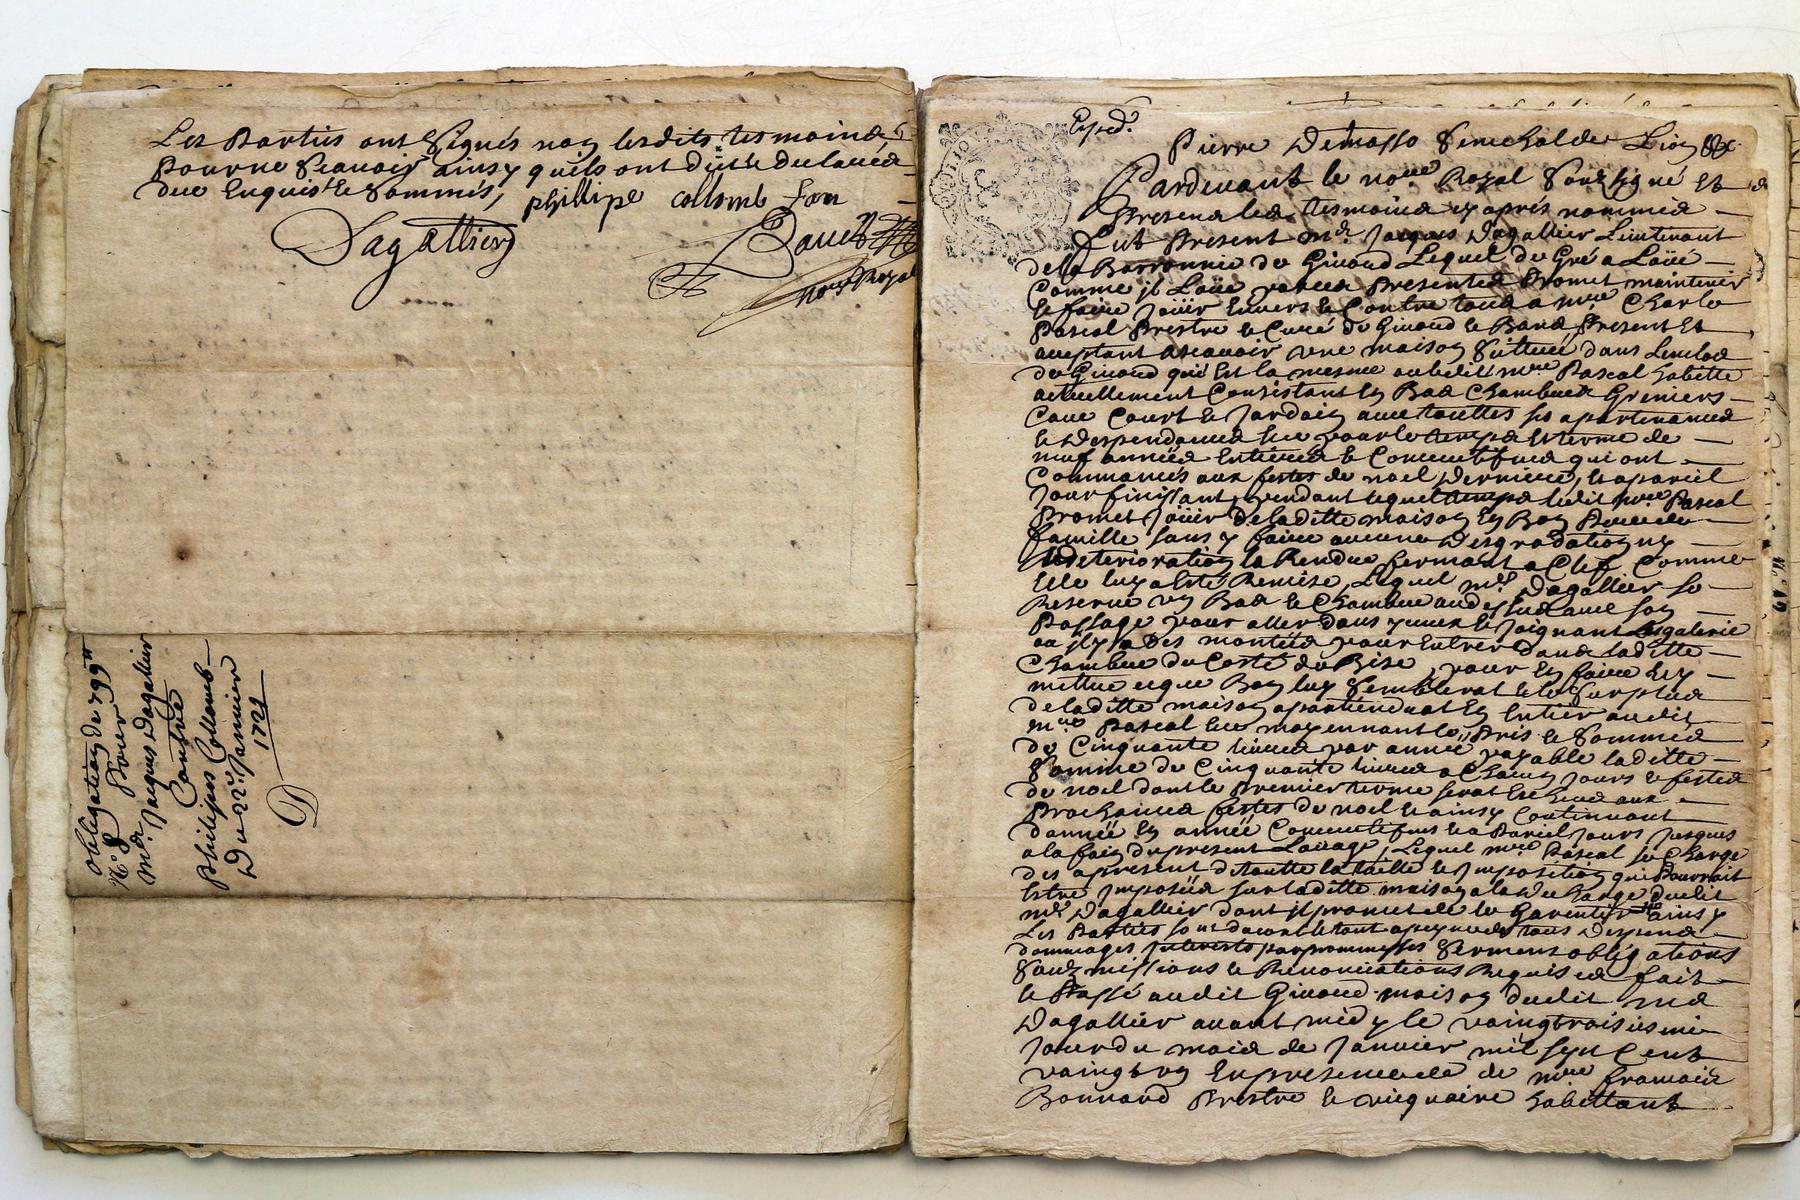 Les Parties ont Signés non lesdits tesmoins
Pour ne Scavoir Ainsy quils ont ditt et declaréd
due Enquis et Sommis, phillipe collomb
Dagallier
nore Royal
obligation de 799ll
No. 8 Pour
mr. Jacques Dagallier
Contre
Philipes Collomb
Du 22e. Janvier
1721
Exped.
Pierre Demasso Senechal de Lion &c.
Pardevant le nore Royal Soubsigné Et
Presend les tesmoins cy aprés nommés
fut Present mr. Jacques Dagallier Lieutenant
de la Barronnie de Girond Lequel de Gré a Loüe
Comme il Loüe par ces Presentes Promet maintenir
et faire joüir Envers et Contre tous a mre Charle
Pascal Prestre et Curé de Present Et
aceptant ascavoir une maison Sittuée dans Lenclos
de qui Est la mesme ou ledit mre Pascal habitte
actuellement Consistant En Bas Chambres Greniers
Cave Court et Jardain avec touttes ses apartenances
et despendances Et ce pour le temps Et terme de
neuf années Entieres et Consecutives qui ont
Commancés aux festes de noel derniere, Et a pareil
Jour finissant, pendant lequel temps ledit mre Pascal
Promet joüir de laditte maison En Bon Pere de
famille sans y faire aucune desgradation ny
deterioration la Rendre fermant a Clef Comme
Elle luy a Esté Remise, Lequel mr. Dagallier se
Reserve un Bas et Chambre au dessus avec son
Passage pour aller dans yceux et joignant la galerie
ou il y a des montées pour Entrer dans laditte
Chambre du Costé de Bise, pour En faire Et y
mettre ce que Bon luy Semblerat et le Surplus
de laditte maison apartiendrat En Entier audit
mre Pascal Et ce moyennant le Pris et Somme
de Cinquante livres par année payable laditte
Somme de Cinquante livres a Chacun jours et festes
de noel dont le Premier terme serat Escheus aux
Prochaines festes de noel et ainsy Continuant
dannée En année Consecutives Et a Pareil jours jusques
a la fain du present Loüage, Lequel mre Pascal se Charge
des apresent de toutte la taille et jmposition qui Pourrait
Estre jmposées sur laditte maison a la descharge dudit
mr. Dagallier dont il promet de le Garentir Ainsy
Les Parties le tout a peyne de tous despens
dommages Interests par promesses Serment obligations
Soubzmissions et Renonciations Requises fait
et Passé audit maison dudit
Dagallier avant midy le vaingtroisiesme
jour du mois de Janvier mil sept Cent
vaingt un En presence de mre francois
Bonnard Prestre et vicquaire habittant